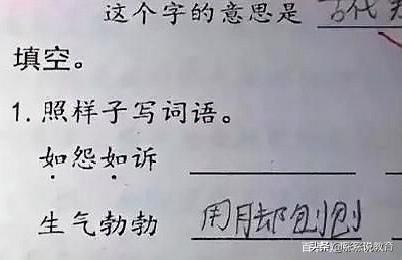 这个字的意思是 古代
填空。
1. 照样子写词语。
如怨如诉
生气勃勃 用脚刨刨
百家号/熙熙说教育